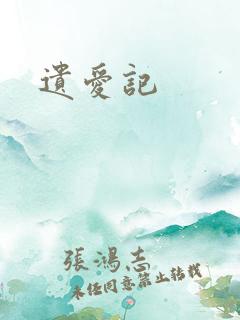 遺愛記
張鴻志
未經同意禁止转载